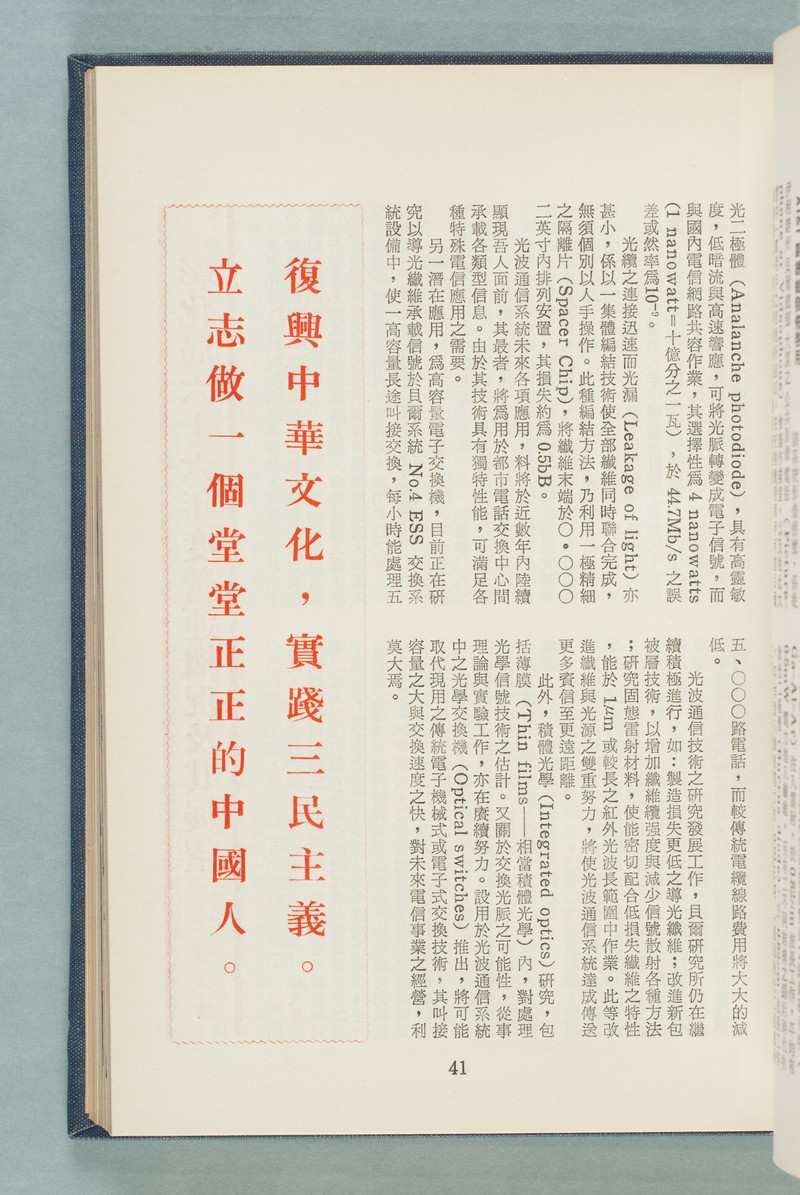 光二極體（Analanche photodiode），具有高靈敏
度，低暗流與高速響應，可將光脈轉變成電子信號，而
與國內電信網路共容作業，其選擇性爲 4 nanowatts
（1 nanowatt＝十億分之一瓦），於 44.7Mb/s 之誤
差或然率爲10⁻⁹。
光纜之連接迅速而光漏（Leakage of light）亦
甚小，係以一集體編結技術使全部纖維同時聯合完成，
無須個別以人手操作。此種編結方法，乃利用一極精細
之隔離片（Spacer Chip），將纖維末端於〇・〇〇〇
二英寸內排列安置，其損失約爲 0.5bB。
光波通信系統未來各項應用，料將於近數年內陸續
顯現吾人面前，其最者，將爲用於都市電話交換中心間
承載各類型信息。由於其技術具有獨特性能，可滿足各
種特殊電信應用之需要。
另一潛在應用，爲高容量電子交換機，目前正在研
究以導光纖維承載信號於貝爾系統 No.4 ESS 交換系
統設備中，使一高容量長途叫接交換，每小時能處理五
五、〇〇〇路電話，而較傳統電纜線路費用將大大的減
低。
光波通信技術之研究發展工作，貝爾研究所仍在繼
續積極進行，如：製造損失更低之導光纖維；改進新包
被層技術，以增加纖維纜强度與減少信號散射各種方法
；研究固態雷射材料，使能密切配合低損失纖維之特性
，能於 1μm 或較長之紅外光波長範圍中作業。此等改
進纖維與光源之雙重努力，將使光波通信系統達成傳送
更多資信至更遠距離。
此外，積體光學（Integrated optics）研究，包
括薄膜（Thin films——相當積體光學）內，對處理
光學信號技術之估計。又關於交換光脈之可能性，從事
理論與實驗工作，亦在賡續努力。設用於光波通信系統
中之光學交換機（Optical switches）推出，將可能
取代現用之傳統電子機械式或電子式交換技術，其叫接
容量之大與交換速度之快，對未來電信事業之經營，利
莫大焉。
復興中華文化，實踐三民主義。
立志做一個堂堂正正的中國人。
41